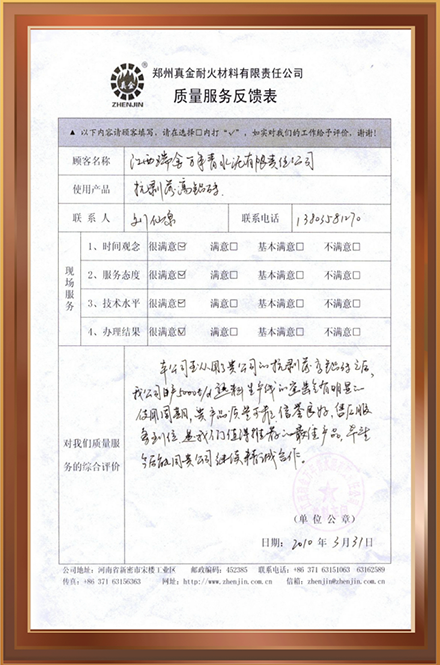 郑州真金耐火材料有限责任公司
ZHENJIN
质量服务反馈表
▲ 以下内容请顾客填写,请在选择□内打“√”,如实对我们的工作给予评价,谢谢!
顾客名称 江西瑞金万年青水泥有限责任公司
使用产品 抗剥落高铝砖
联系人 联系电话
现场服务
1、时间观念 很满意☑ 满意□ 基本满意□ 不满意□
2、服务态度 很满意☑ 满意□ 基本满意□ 不满意□
3、技术水平 很满意☑ 满意□ 基本满意□ 不满意□
4、办理结果 很满意☑ 满意□ 基本满意□ 不满意□
对我们质量服务的综合评价
我公司自从用了贵公司的抗剥落高铝砖之后,
我公司日产5000t/d熟料生产线的窑
使用周期,贵产品质量可靠,信誉良好,售后服
务到位 是我们值得推荐的最佳产品。
今后能同贵公司继续精诚合作。
(单位公章)
日期: 2010年3月31日
公司地址:河南省新密市宋楼工业区 邮政编码:452385 联系电话:+86 371 63151063 63162589
传真:+86 371 63156363 网址:http://www.zhenjin.com.cn 信箱:zhenjin@zhenjin.com.cn